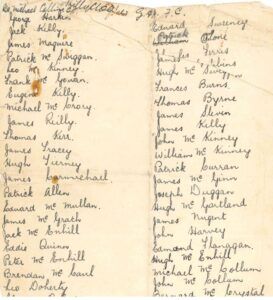 Michael Collins G.F.C.
George Harkin
Jack Kelly
James Maguire
Patrick Mc Swiggan.
Leo Mc Kinney
Frank Mc Gowan.
Eugene Kelly.
Michael Mc Crory.
James Reilly.
Thomas Kerr.
James Tracey
Hugh Tierney
James Carmichael
Patrick Allen
Edward Mc Mullan.
James Mc Grath
Jack Mc Enhill
Eddie Quinn
Peter Mc Enhill
Brendan Mc Carl
Leo Doherty
Edward Sweeney
Patrick
William
James
James
Hugh Mc
Frances Burns.
Thomas Byrne
James Slevin
James Kelly
John Mc Kinney
William Mc Kinney
Patrick Curran
James Mc Glinn
Joseph Duggan
Hugh Mc Partland
James Nugent
John Harvey
Edmond Flanagan.
Hugh Mc Enhill
Michael Mc Collum
John Mc Collum
Bernard Mc Crystal